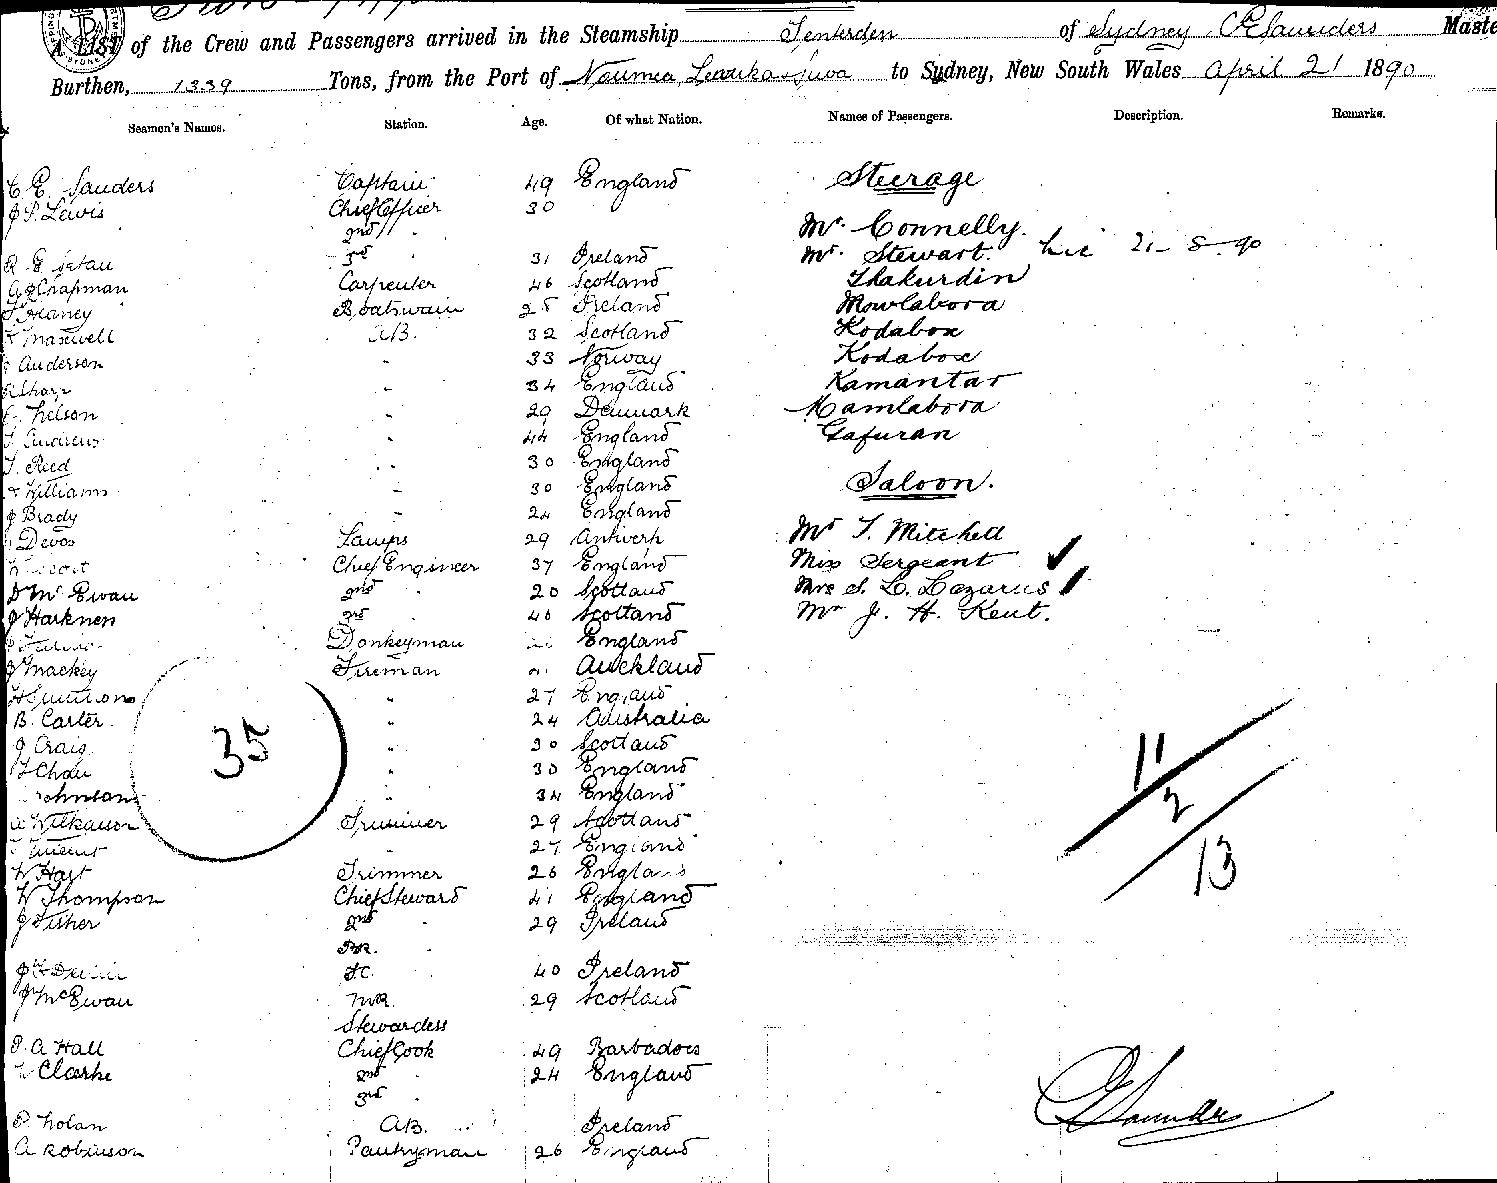 A LIST of the Crew and Passengers arrived in the Steamship Tenterden of Sydney C E Saunders Maste
Burthen, 1339 Tons, from the Port of Noumea, Levuka Suva to Sydney, New South Wales April 21 1890
Seamen's Names. Station. Age. Of what Nation. Names of Passengers. Description. Remarks.
C E Sauders Captain 49 England Steerage
J S. Lewis Chief Officer 30
2nd " Mr. Connelly.
3rd " 31 Ireland Mr. Stewart. 21-8-90
A Chapman Carpenter 46 Scotland Thakurdin
Haney Boatswain 25 Ireland Mowlabora
Maxwell AB. 32 Scotland Kodabox
Anderson " 33 Norway Kodabox
Sharp " 34 England Kamantar
Nelson " 29 Denmark Mamlabora
Andrews " 44 England Gafuran
T. Reed " 30 England
Williams " 30 England Saloon.
J Brady " 24 England
Devos Lamps 29 Antwerp Mr T. Mitchell
Chief Engineer 37 England Miss Sergeant ✓
D Mc Ewan 2nd " 20 Scotland Mrs S. L. Lazarus /
J Harkness 3rd " 40 Scotland Mr J. H. Kent.
Donkeyman England
J Mackey Fireman Auckland
" 27 England
B. Carter " 24 Australia
J Craig " 30 Scotland
Chau " 30 England
Johnson " 34 England
Wilkinson Trimmer 29 Scotland
Vincent " 27 England
W Hart Trimmer 26 England
W Thompson Chief Steward 41 England
J Fisher 2nd " 29 Ireland
J F Devlin 40 Ireland
J McEwan 29 Scotland
Stewardess
P. A Hall Chief Cook 49 Barbadoes
Clarke 2nd " 24 England
3rd "
P. Nolan AB. Ireland
A Robinson Pantryman 26 England
35
11
2
13
C E Saunders